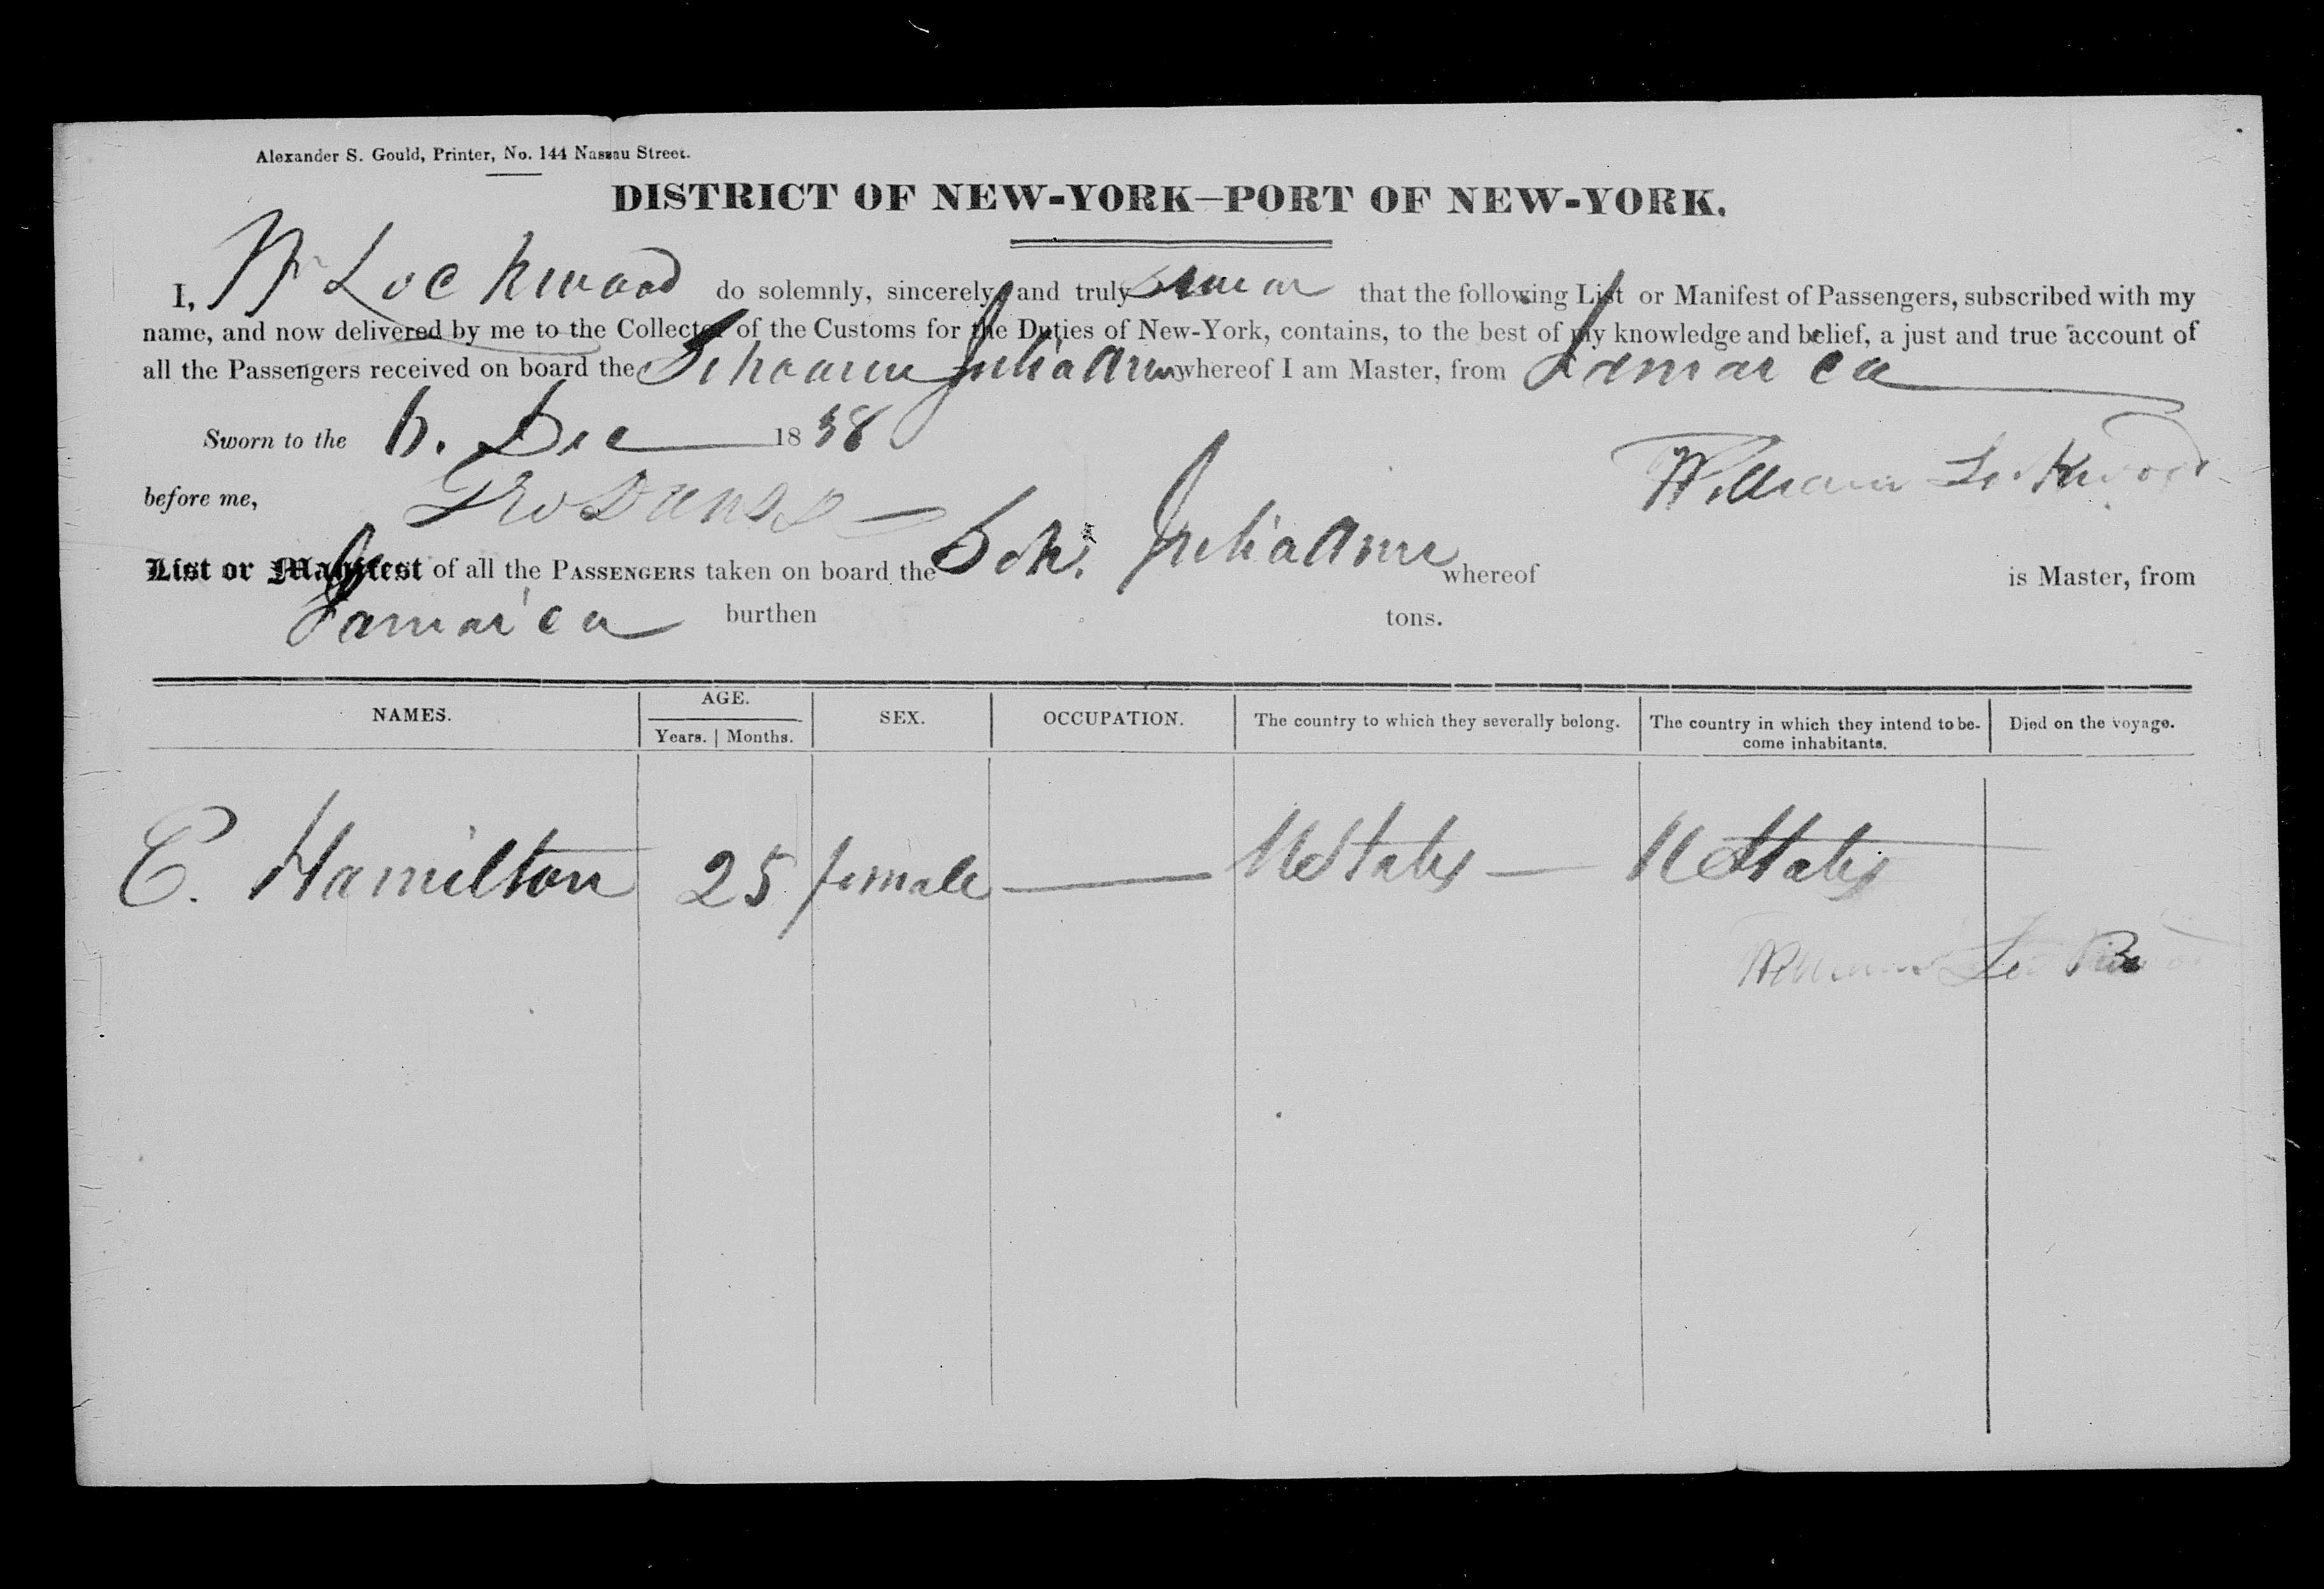 Alexander S. Gould, Printer, No. 144 Nassau Street.
DISTRICT OF NEW-YORK—PORT OF NEW-YORK.
I, Wm Lockwood do solemnly, sincerely and truly swear that the following List or Manifest of Passengers, subscribed with my
name, and now delivered by me to the Collector of the Customs for the Duties of New-York, contains, to the best of my knowledge and belief, a just and true account of
all the Passengers received on board the Schooner Julia Ann whereof I am Master, from Jamaica
Sworn to the 6. Dec 1838
William Lockwood
before me,
List or Manifest of all the PASSENGERS taken on board the Sch. Julia Ann whereof is Master, from
Jamaica burthen tons.
NAMES. AGE. Years. | Months. SEX. OCCUPATION. The country to which they severally belong. The country in which they intend to become inhabitants. Died on the voyage.
C. Hamilton 25 female — UStates — UStates
William Lockwood